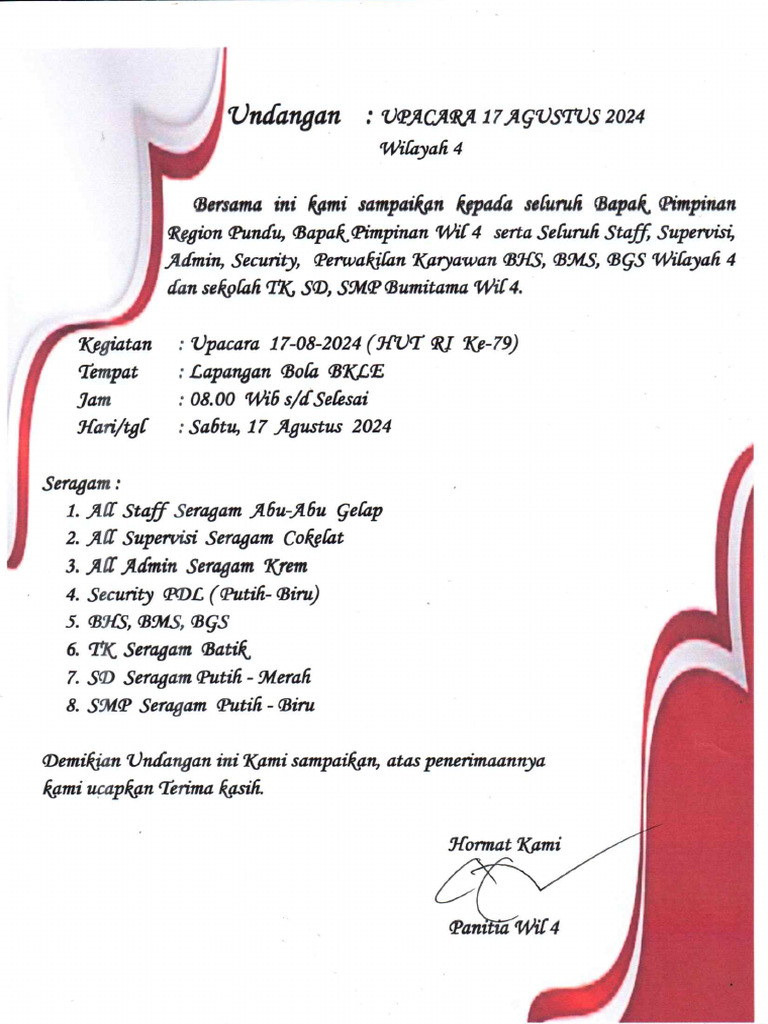 Undangan : UPACARA 17 AGUSTUS 2024
Wilayah 4
Bersama ini kami sampaikan kepada seluruh Bapak Pimpinan
Region Pundu, Bapak Pimpinan Wil 4 serta Seluruh Staff, Supervisi,
Admin, Security, Perwakilan Karyawan BHS, BMS, BGS Wilayah 4
dan sekolah TK, SD, SMP Bumitama Wil 4.
Kegiatan : Upacara 17-08-2024 ( HUT RI Ke-79)
Tempat : Lapangan Bola BKLE
Jam : 08.00 Wib s/d Selesai
Hari/tgl : Sabtu, 17 Agustus 2024
Seragam :
1. All Staff Seragam Abu-Abu Gelap
2. All Supervisi Seragam Cokelat
3. All Admin Seragam Krem
4. Security PDL ( Putih- Biru)
5. BHS, BMS, BGS
6. TK Seragam Batik
7. SD Seragam Putih - Merah
8. SMP Seragam Putih - Biru
Demikian Undangan ini Kami sampaikan, atas penerimaannya
kami ucapkan Terima kasih.
Hormat Kami
Panitia Wil 4